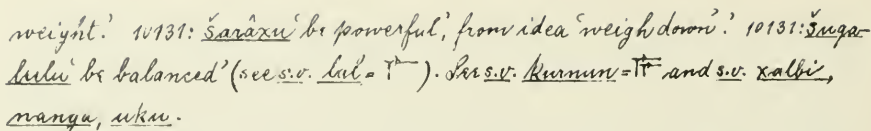 weight.' 10131: šarâxu 'be powerful', from idea 'weigh down.' 10131: šuqa-
lulu 'be balanced' (see s.v. lal = 𒇲). See s.v. kurnun = and s.v. xalbi,
nanga, uku.